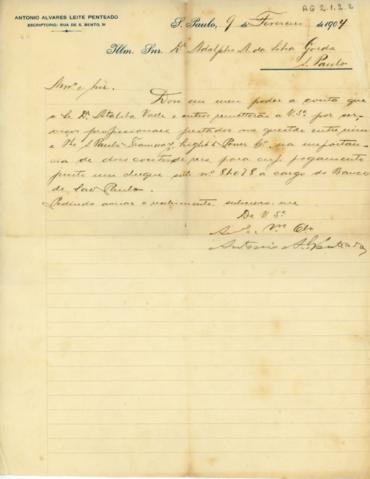 AG 2.1.2.2
ANTONIO ALVARES LEITE PENTEADO
ESCRIPTORIO: RUA DE S. BENTO,
S. Paulo, 9 de Fevereiro de 1904
Illm. Snr. Dr Adolpho A. da Silva Gordo
S. Paulo
Amo e Snr.
Dou em meu poder a conta que
o Sr. Dr. Ataliba Valle e outro remetteram a V. Sa. por ser-
viços profissionaes prestados na questão entre mim
e The S. Paulo Tramway Light & Power Co. na importan-
cia de dois contos de reis, para cujo pagamento
junto um cheque sob no. 86078 a cargo do Banco
de São Paulo.
Pedindo accusar o recebimento, subscrevo-me
De V. Sa.
Antonio A. L. Penteado